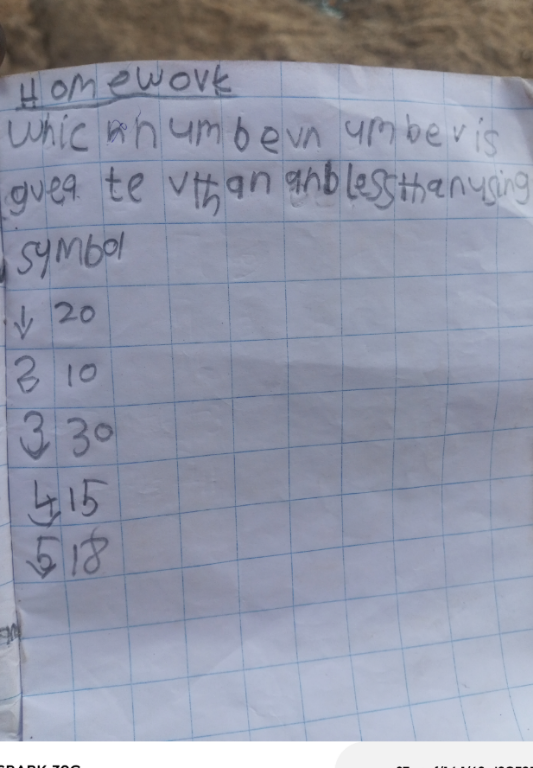 Homework
Which number number is
greater than and less than using
symbol
1 20
2 10
3 30
4 15
5 18